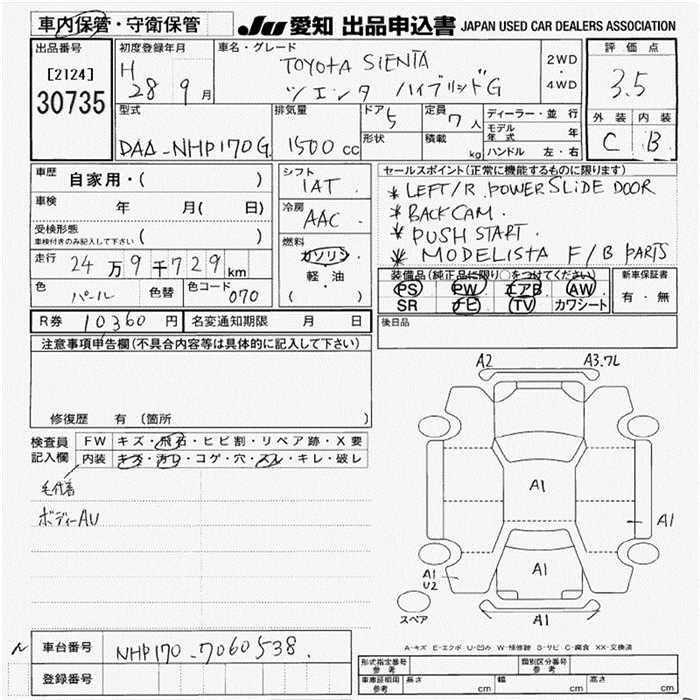 車内保管・守衛保管
JU 愛知 出品申込書 JAPAN USED CAR DEALERS ASSOCIATION
出品番号
[2124]
30735
初度登録年月
H 28 9月
車名・グレード
TOYOTA SIENTA
シエンタ ハイブリッドG
2WD
・
4WD
評価点
3.5
外装 内装
C B
型式
DAA-NHP170G
排気量
1500cc
ドア 5
形状
定員 7人
積載 kg
ディーラー・並行
モデル年式 年
ハンドル 左・右
車歴 自家用・( )
車検 年 月( 日)
受検形態
車検付きのみ記入して下さい ( )
走行 24万9千729km
色 パール 色替 色コード 070
シフト
IAT
冷房
AAC
燃料
ガソリン
軽・油
( )
セールスポイント(正常に機能するものに限ります)
* LEFT/R POWER SLIDE DOOR
* BACK CAM.
* PUSH START.
* MODELISTA F/B PARTS
装備品(純正品に限り○をつけてください)
PS PW エアB AW
SR ナビ TV カワシート
新車保証書
有・無
R券 10360円 名変通知期限 月 日
後日品
注意事項申告欄(不具合内容等は具体的に記入して下さい)
修復歴 有(箇所 )
検査員記入欄
FW キズ・飛石・ヒビ割・リペア跡・X要
内装 キズ・汚レ・コゲ・穴・スレ・キレ・破レ
毛付着
ボディーAU
A2 A3.7L
A1
A1
A1
A1
U2
A1
スペア
A-キズ E-エクボ U-凹み W-補修跡 S-サビ C-腐食 XX-交換済
車台番号 NHP170-7060538.
登録番号
形式指定番号
参考
類別区分番号
参考
車庫証明用
参考
長さ cm 幅 cm 高さ cm